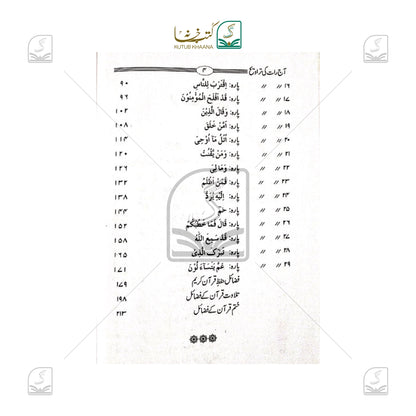 کتب خانہ
KUTUB KHAANA
آج رات کی تراویح ۳
۱۶ // // پارہ: اِقْتَرَبَ لِلنَّاسِ ۹۰
۱۷ // // پارہ: قَدْ اَفْلَحَ الْمُؤْمِنُوْنَ ۹۶
۱۸ // // پارہ: وَقَالَ الَّذِیْنَ ۱۰۲
۱۹ // // پارہ: اَمَّنْ خَلَقَ ۱۰۸
۲۰ // // پارہ: اُتْلُ مَا اُوْحِیَ ۱۱۴
۲۱ // // پارہ: وَمَنْ یَّقْنُتْ ۱۲۰
۲۲ // // پارہ: وَمَالِیَ ۱۲۶
۲۳ // // پارہ: فَمَنْ اَظْلَمُ ۱۳۲
۲۴ // // پارہ: اِلَیْهِ یُرَدُّ ۱۳۸
۲۵ // // پارہ: حٰمٓ ۱۴۴
۲۶ // // پارہ: قَالَ فَمَا خَطْبُكُمْ ۱۵۲
۲۷ // // پارہ: قَدْ سَمِعَ اللّٰهُ ۱۵۸
۲۸ // // پارہ: تَبٰرَكَ الَّذِیْ ۱۶۵
۲۹ // // پارہ: عَمَّ یَتَسَآءَ لُوْنَ ۱۷۱
فضائل حفظ قرآن کریم ۱۷۹
تلاوت قرآن کے فضائل ۱۹۸
ختم قرآن کے فضائل ۲۱۳